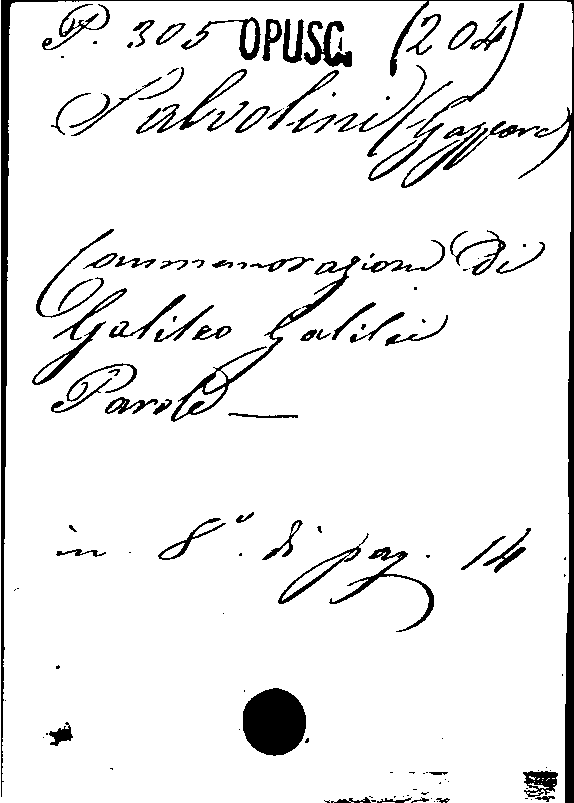 P. 305 OPUSC. (204)
Salvolini (Gaspare)
Commemorazione di
Galileo Galilei
Parole —
in 8º. di pag. 14